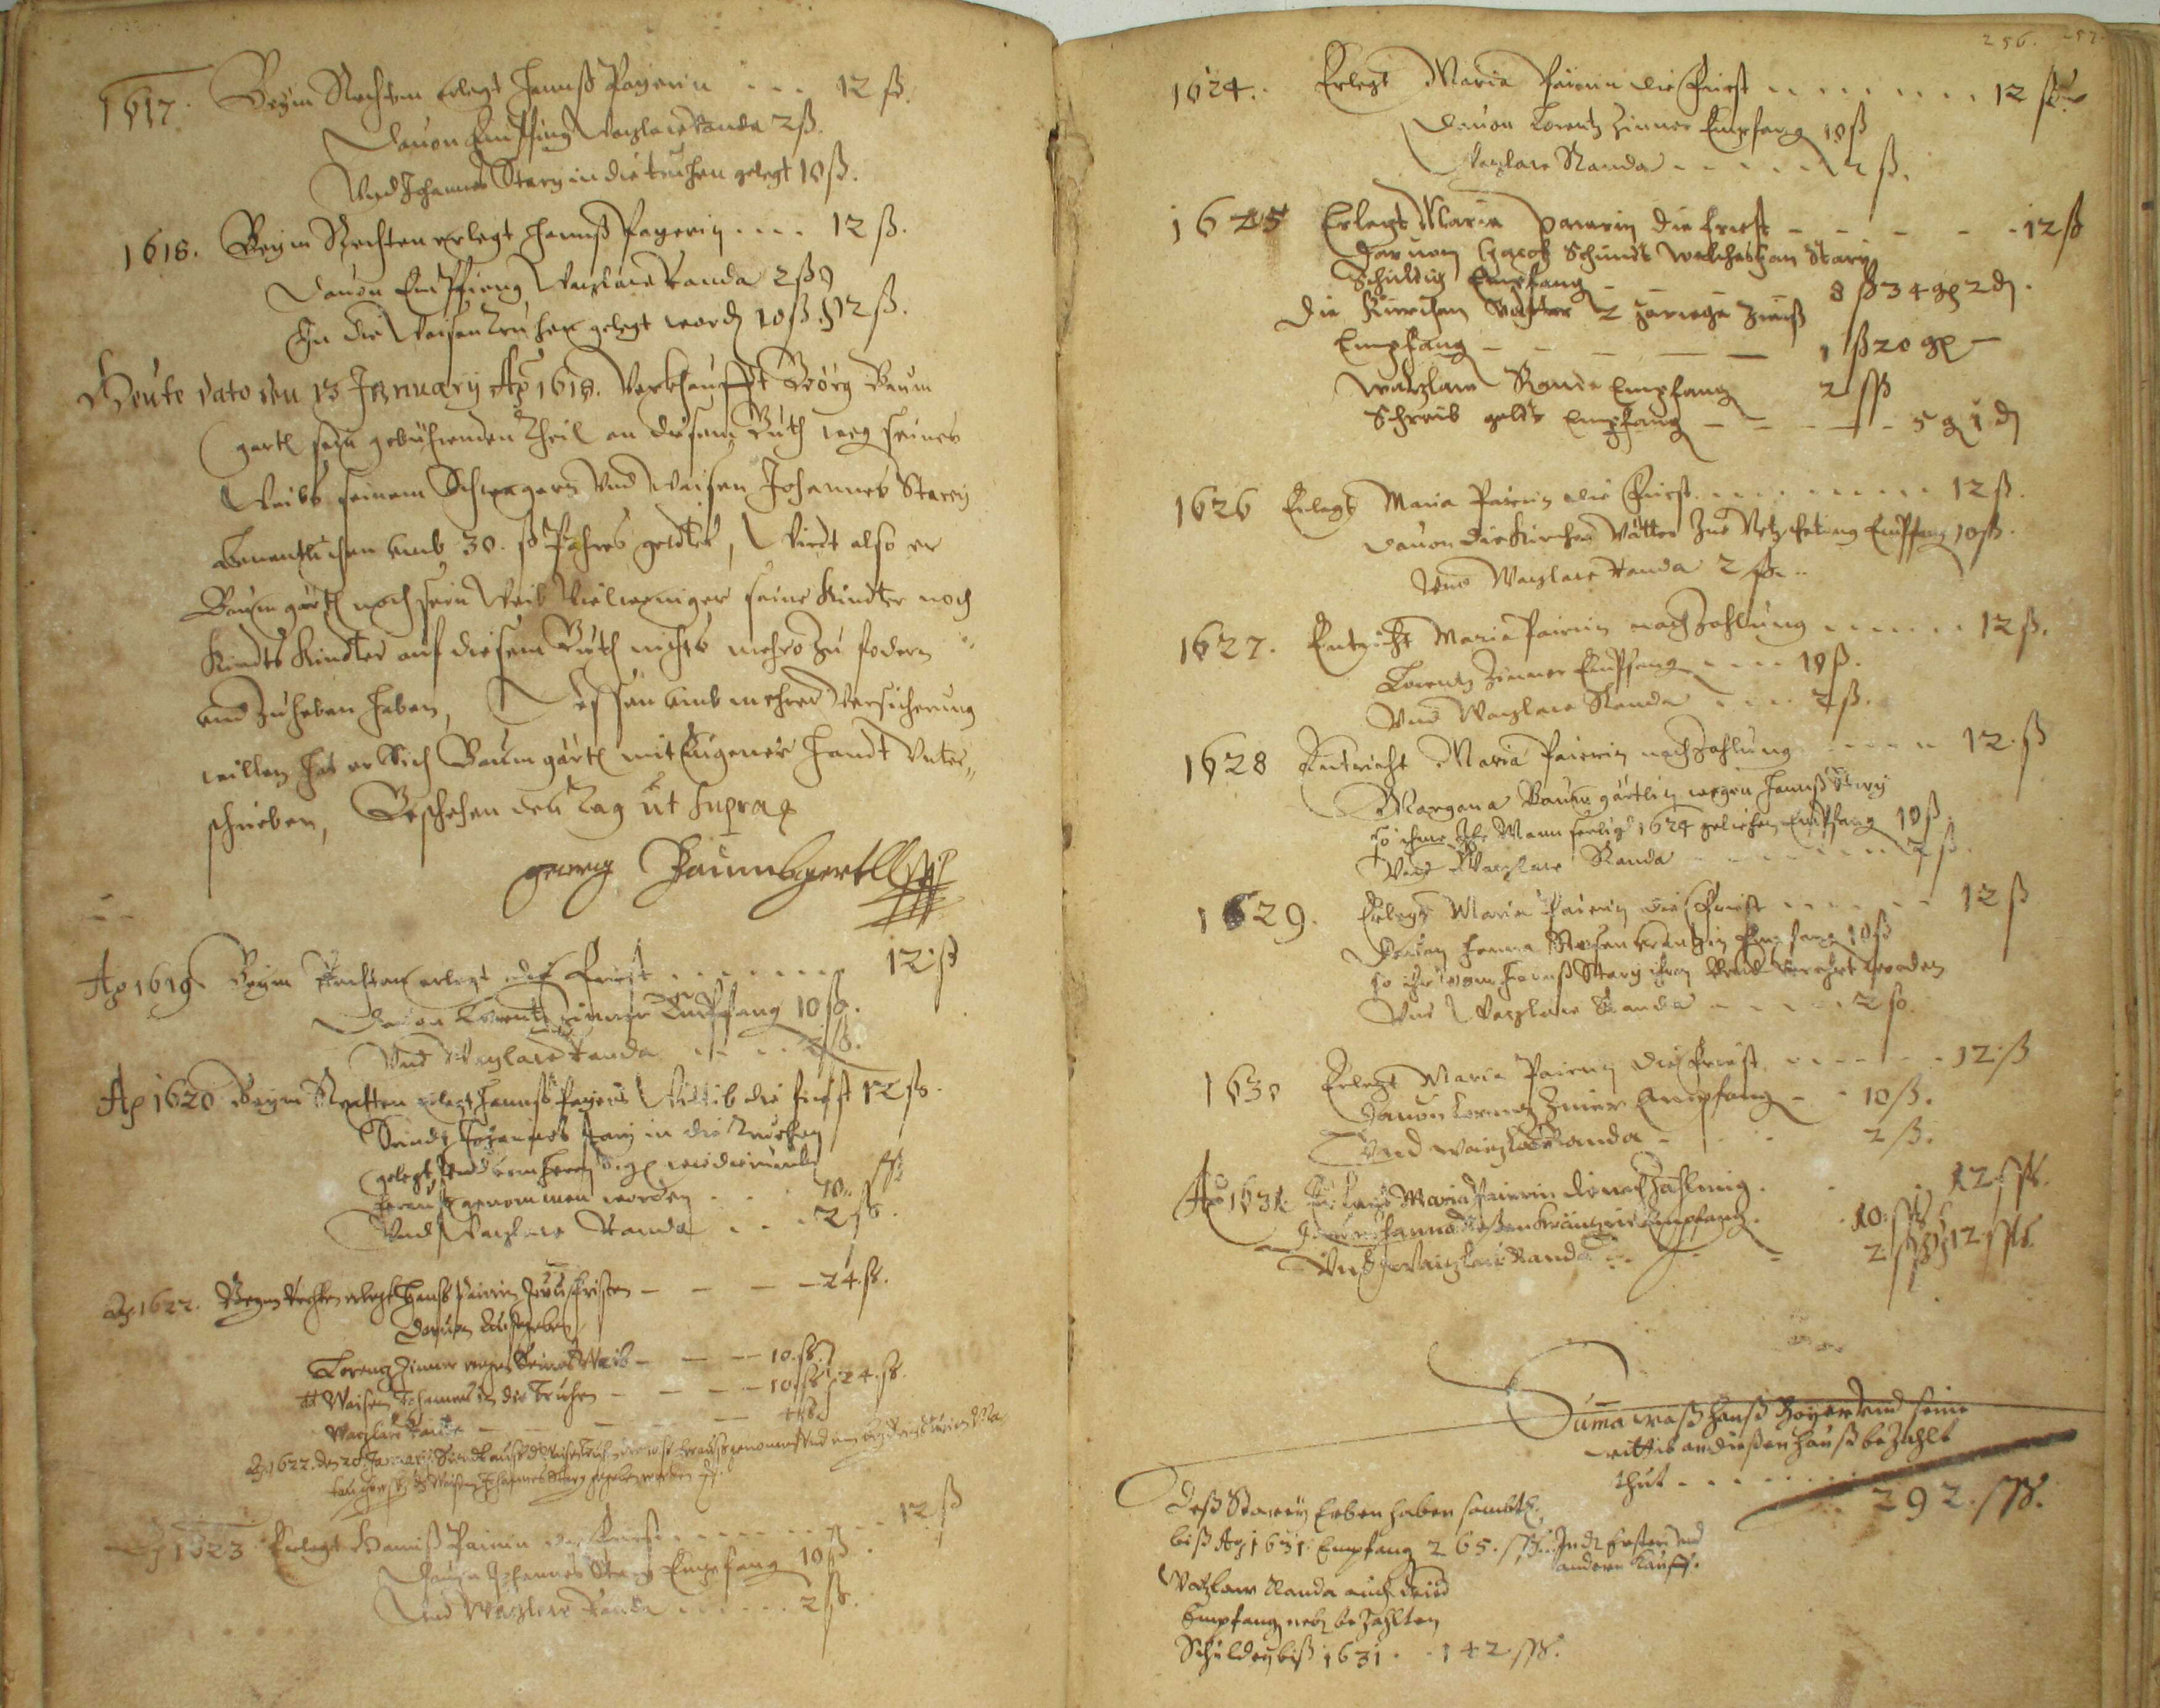 1617. Beym Rechten erlegt Hannß Payerin . . . 12 ß.
Dauon Empfing Wazlaw Randa 2 ß.
Vnd Johannes Stary in die truhen gelegt 10 ß.
1618. Beym Rechten erlegt Hannß Payerin . . . . 12 ß.
Dauon Empfieng Wazlaw Randa 2 ß
In die Waisen Truhen gelegt word 10 ß. 12 ß.
Heute dato den 13 January Ao 1618. Verkhaufft Geörg Baum
gartl sein gebührenden Theil an diesem Guth weg seines
Weibs seinem Schwagern vnd Waisen Johannes Starey
benentlichen vmb 30. ß Pahres geldter, Wirdt also er
Baumgärtl noch sein Weib vielweniger seine Kindter noch
Kindts Kindter auf diesem Guth nichts mehro zu fodern
vnd zu heben haben, Dessen vmb mehrer Versicherung
willen hat er Sich Baumgärtl mit Eügener Handt Vnter„
schrieben, Geschehen den Tag ut supra
georg Paumbgertll
Ao 1619 Beym Rechten erlegt die Frist . . . . . . . 12 ß
Dauon Lorentz Zinner Empfang 10 ß.
Vnd Wazlaw Randa . . . . 2 ß.
Ao 1620 Beym Rechten erlegt Hannß Payers Wittib die frist 12 ß.
Seindt Johannes Stary in die Truchen
gelegt, Vnd
herauß genommen worden . . . 10. ß
Vnd Wazlaw Randa . . . 2 ß.
Ao. 1622. Beym Rechten erlegt Hanß Paierin Zwu Fristen — — — 24. ß.
Daruon Außgeben
Lorentz Zinner wegen Seines Weib — — — 10. ß.
Waisen Johannes in die Truhen — — — 10. ß. 24. ß.
Wazlaw Randa — — — 4 ß.
Ao. 1622. den 20. January
Johannes Stary geben worden
Ao 1623 Erlegt Hannß Pairin die Frist . . . . . . . 12 ß
Dauon Johannes Stary Empfang 10 ß.
Vnd Wazlaw Randa . . . . . . 2 ß.
256. 257.
1624. Erlegt Maria Pairin die Frist . . . . . . . . 12 ß
Dauon Lorentz Zinner Empfang 10 ß
Wazlaw Randa . . . . . . 2 ß.
1625 Erlegt Maria Paierin die Frist - - - - - 12 ß
Daruon Jacob Schmidt welches Han Stary
Schuldig Empfang - - 8 ß 34 gr 2 d.
Die Kirchen Vätter 2 Zinß
Empfang — — — — 1 ß 20 gr —
Watzlaw Randa Empfang 2 ß
Schreib geldt Empfang — — — — 5 g 1 d
1626 Erlegt Maria Pairin die Frist . . . . . . . . 12 ß.
Dauon die Kirchen Vätter Zue Empfang 10 ß.
Vnd Wazlaw Randa 2 ß. . .
1627. Entricht Maria Pairin nach Zahlung . . . . . . 12 ß.
Lorentz Zinner Empfang . . . . 10 ß.
Vnd Wazlaw Randa . . . . 2 ß.
1628 Entricht Maria Paierin nach Zahlung . . . . . 12. ß
Margana Baumgärtlin wegen Hannß Stary
so ihme Ihr Mann seelig 1624 geliehen Empfang 10 ß.
Vnd Wazlaw Randa . . . . . . . . 2 ß.
1629. Erlegt Maria Pairin die Frist . . . . . . 12 ß
Dauon Hanna Empfang 10 ß
so Ihr vom Hannß Stary worden
Vnd Wazlaw Randa . . . . . . 2 ß.
1630 Erlegt Maria Pairin die Frist . . . . . . 12 ß
Dauon Lorentz Zinner Empfang — - 10 ß.
Vnd Wazlaw Randa - . . . 2 ß.
Ao 1631. Erlegt Maria Paierin die nach Zahlung . . . 12 ß.
Dauon Hanna Empfang . . 10. ß
Vnd Wazlaw Randa . . - 2 ß 12 ß.
Suma waß Hanß Bayer vnd seine
wittib an dießen Hauß bezahlt
thut . . . . . . .
292. ß.
Deß Starey Erben haben sambtl.
biß Ao 1631. Empfang 265. ß. In d Ersten vnd
andern Kauff.
Watzlaw Randa auch
Empfang neb bezahlten
Schulden biß 1631 . . 142. ß.